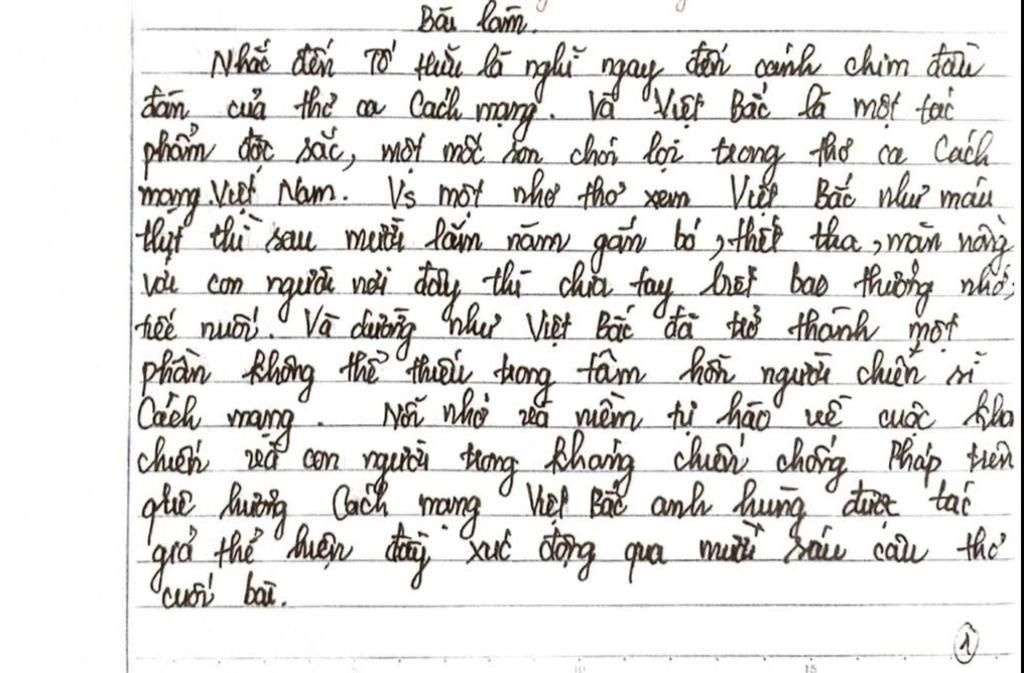 Bài làm.
Nhắc đến Tố Hữu là nghĩ ngay đến cánh chim đầu
đàn của thơ ca Cách mạng. Và Việt Bắc là một tác
phẩm đặc sắc, một mốc son chói lọi trong thơ ca Cách
mạng Việt Nam. Vs một nhà thơ xem Việt Bắc như máu
thịt thì sau mười lăm năm gắn bó, thiết tha, mặn nồng
với con người nơi đây thì chia tay biết bao thương nhớ,
tiếc nuối. Và dường như Việt Bắc đã trở thành một
phần không thể thiếu trong tâm hồn người chiến sĩ
Cách mạng. Nỗi nhớ và niềm tự hào về cuộc khá
chiến và con người trong kháng chiến chống Pháp trên
quê hương Cách mạng Việt Bắc anh hùng được tác
giả thể hiện đầy xúc động qua mười sáu câu thơ
cuối bài.
1
10 15